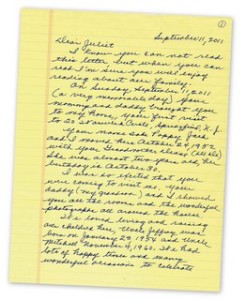 ①
September 11, 2011
Dear Juliet
I know you can not read
this letter but when you can
read I'm sure you will enjoy
reading about our family.
On Sunday, September 11, 2011
(a very memorable day) your
mommy and daddy brought you
to my home, your first visit
to 22 Springfield N. J.
your Papa Jack
and I moved here October 24, 1952
with your
She was almost two years old her
birthday is October 30.
I was so excited that you
were coming to visit us. Your
daddy (my grandson) and I showed
you all the rooms and the wonderful
photographs all around the house.
I so loved living and raising
our children here. Uncle Jeffrey was
born on January 23 1954 and Uncle
Mitchel November 4, 1960. We had
lots of happy times and many
wonderful occasions to celebrate